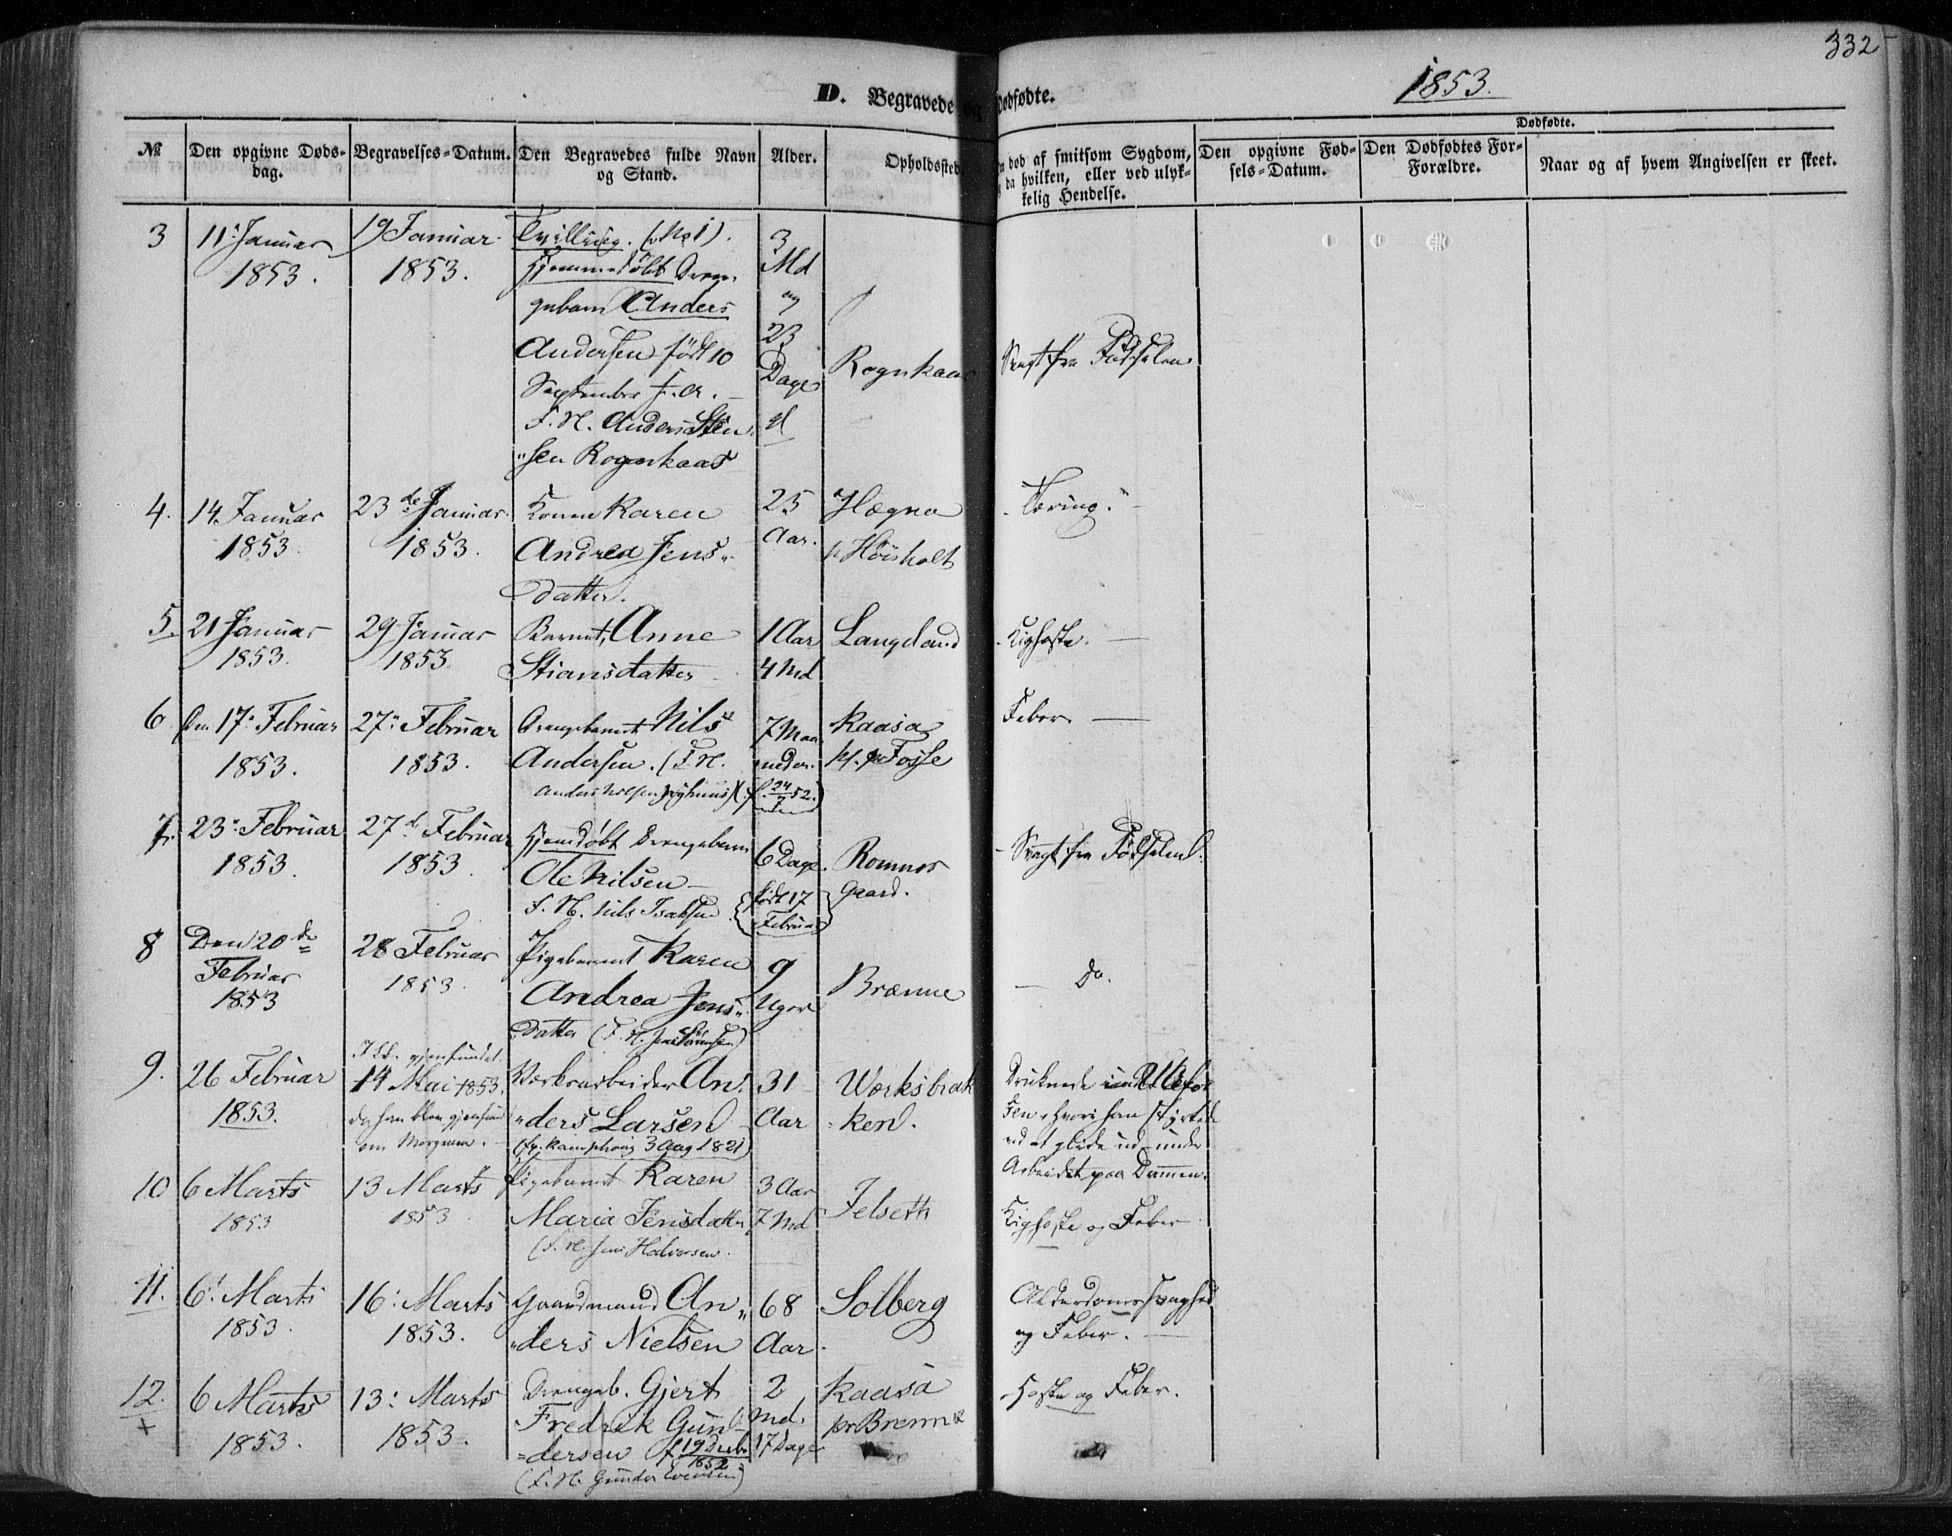 332
D. Begravede og Dødfødte.
1853.
№
Den opgivne Døds-
dag.
Begravelses-Datum.
Den Begravedes fulde Navn
og Stand.
Alder.
Opholdssted
død af smitsom Sygdom,
da hvilken, eller ved ulyk-
kelig Hendelse.
Dødfødte.
Den opgivne Fød-
sels-Datum.
Den Dødfødtes For-
Forældre.
Naar og af hvem Angivelsen er skeet.
3
11: Januar
1853.
19 Januar
1853.
Tvilling. (No 1).
hjemmedøbt Dren-
gebarn Anders
Andersen født 10
September f. a.
F. N. Anders
"sen Rognkaas
3
Md
og
23
Dage
gl
Rognkaas
Svagt fra Fødselen
4.
14. Januar
1853.
23de Januar
1853.
Konen Karen
Andrea Jens"
datter.
25
Aar.
Hægna
p. Høisholt
Tæring.
5.
21 Januar
1853.
29 Januar
1853
Barnet Anne
Stiansdatter
1 Aar
4 Md
Langeland
Kighoste.
6
Den 17: Februar
1853.
27: Februar
1853.
Drengebarnet Nils
Andersen. (F. N.
7 Maa
neder.
(f. 24/7 52.)
Kaasa
Feber
7.
23: Februar
1853.
27d Februar
1853.
hjemdøbt Drengebarn
Ole Nilsen
F. N. Nils Isaksen
6 Dage.
født 17
Februar
Romnes
Gaard.
Svagt fra Fødselen.
8
Den 20de
Februar
1853
28 Februar
1853.
Pigebarnet Karen
Andrea Jens"
datter (F. N. Jens Sørensen)
9
Uger
Brænne
Do.
9.
26 Februar
1853.
gjenfundet
14 Mai 1853.
da han blev gjenfun
om Morgenen.
Værksarbeider An
"ders Larsen
3 Aug 1821)
31
Aar
Værksbrak
ken.
Druknede
fen, hvori han styrtede
ved at glide ud under
Arbeidet paa Dammen.
10
6 Marts
1853
13 Marts
1853
Pigebarnet Karen
Maria Jensdatter
(F. N. Jens Halvorsen.
3 Aar
7 Md
Jelseth
Kighoste og Feber
11.
6: Marts
1853.
16: Marts
1853.
Gaardmand An"
"ders Nielsen
68
Aar.
Solberg
Alderdomssvaghed
og Feber.
12.
6 Marts
1853.
13: Marts
1853.
Drengeb. Gjert
Fredrik Gun
=dersen f. 19 Decbr
1852
(F. N. Gunder Evensen)
2
Md.
17 Dage
Kaasa
pr Brenne
Hoste og Feber.